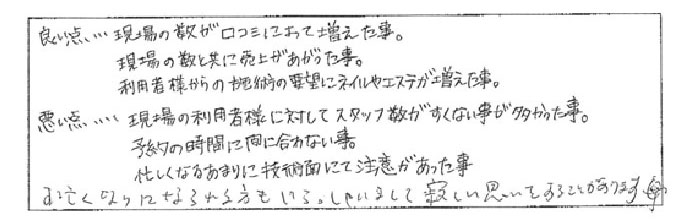 良い点‥‥現場の数が口コミによって増えた事。
現場の数と共に売上があがった事。
利用者様からの施術の要望にネイルやエステが増えた事。
悪い点‥‥現場の利用者様に対してスタッフ数がすくない事が多かった事。
予約の時間に間に合わない事。
忙しくなるあまりに技術面にて注意があった事
お亡くなりになられる方もいらっしゃいまして寂しい思いをすることがあります